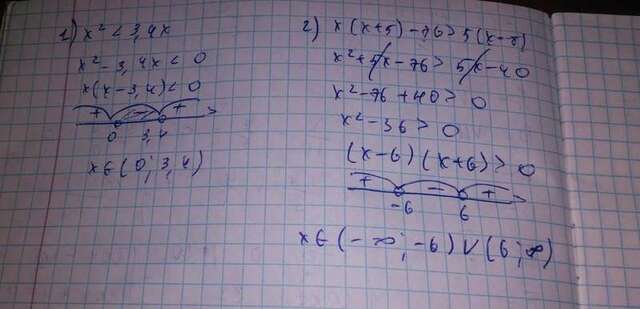 1) x² < 3,4x
x² - 3,4x < 0
x(x-3,4) < 0
+ - +
0 3,4
x∈(0; 3,4)
2) x(x+5) - 76 > 5(x-8)
x² + 5x - 76 > 5x - 40
x² - 76 + 40 > 0
x² - 36 > 0
(x-6)(x+6) > 0
+ - +
-6 6
x∈(-∞; -6) ∪ (6; ∞)